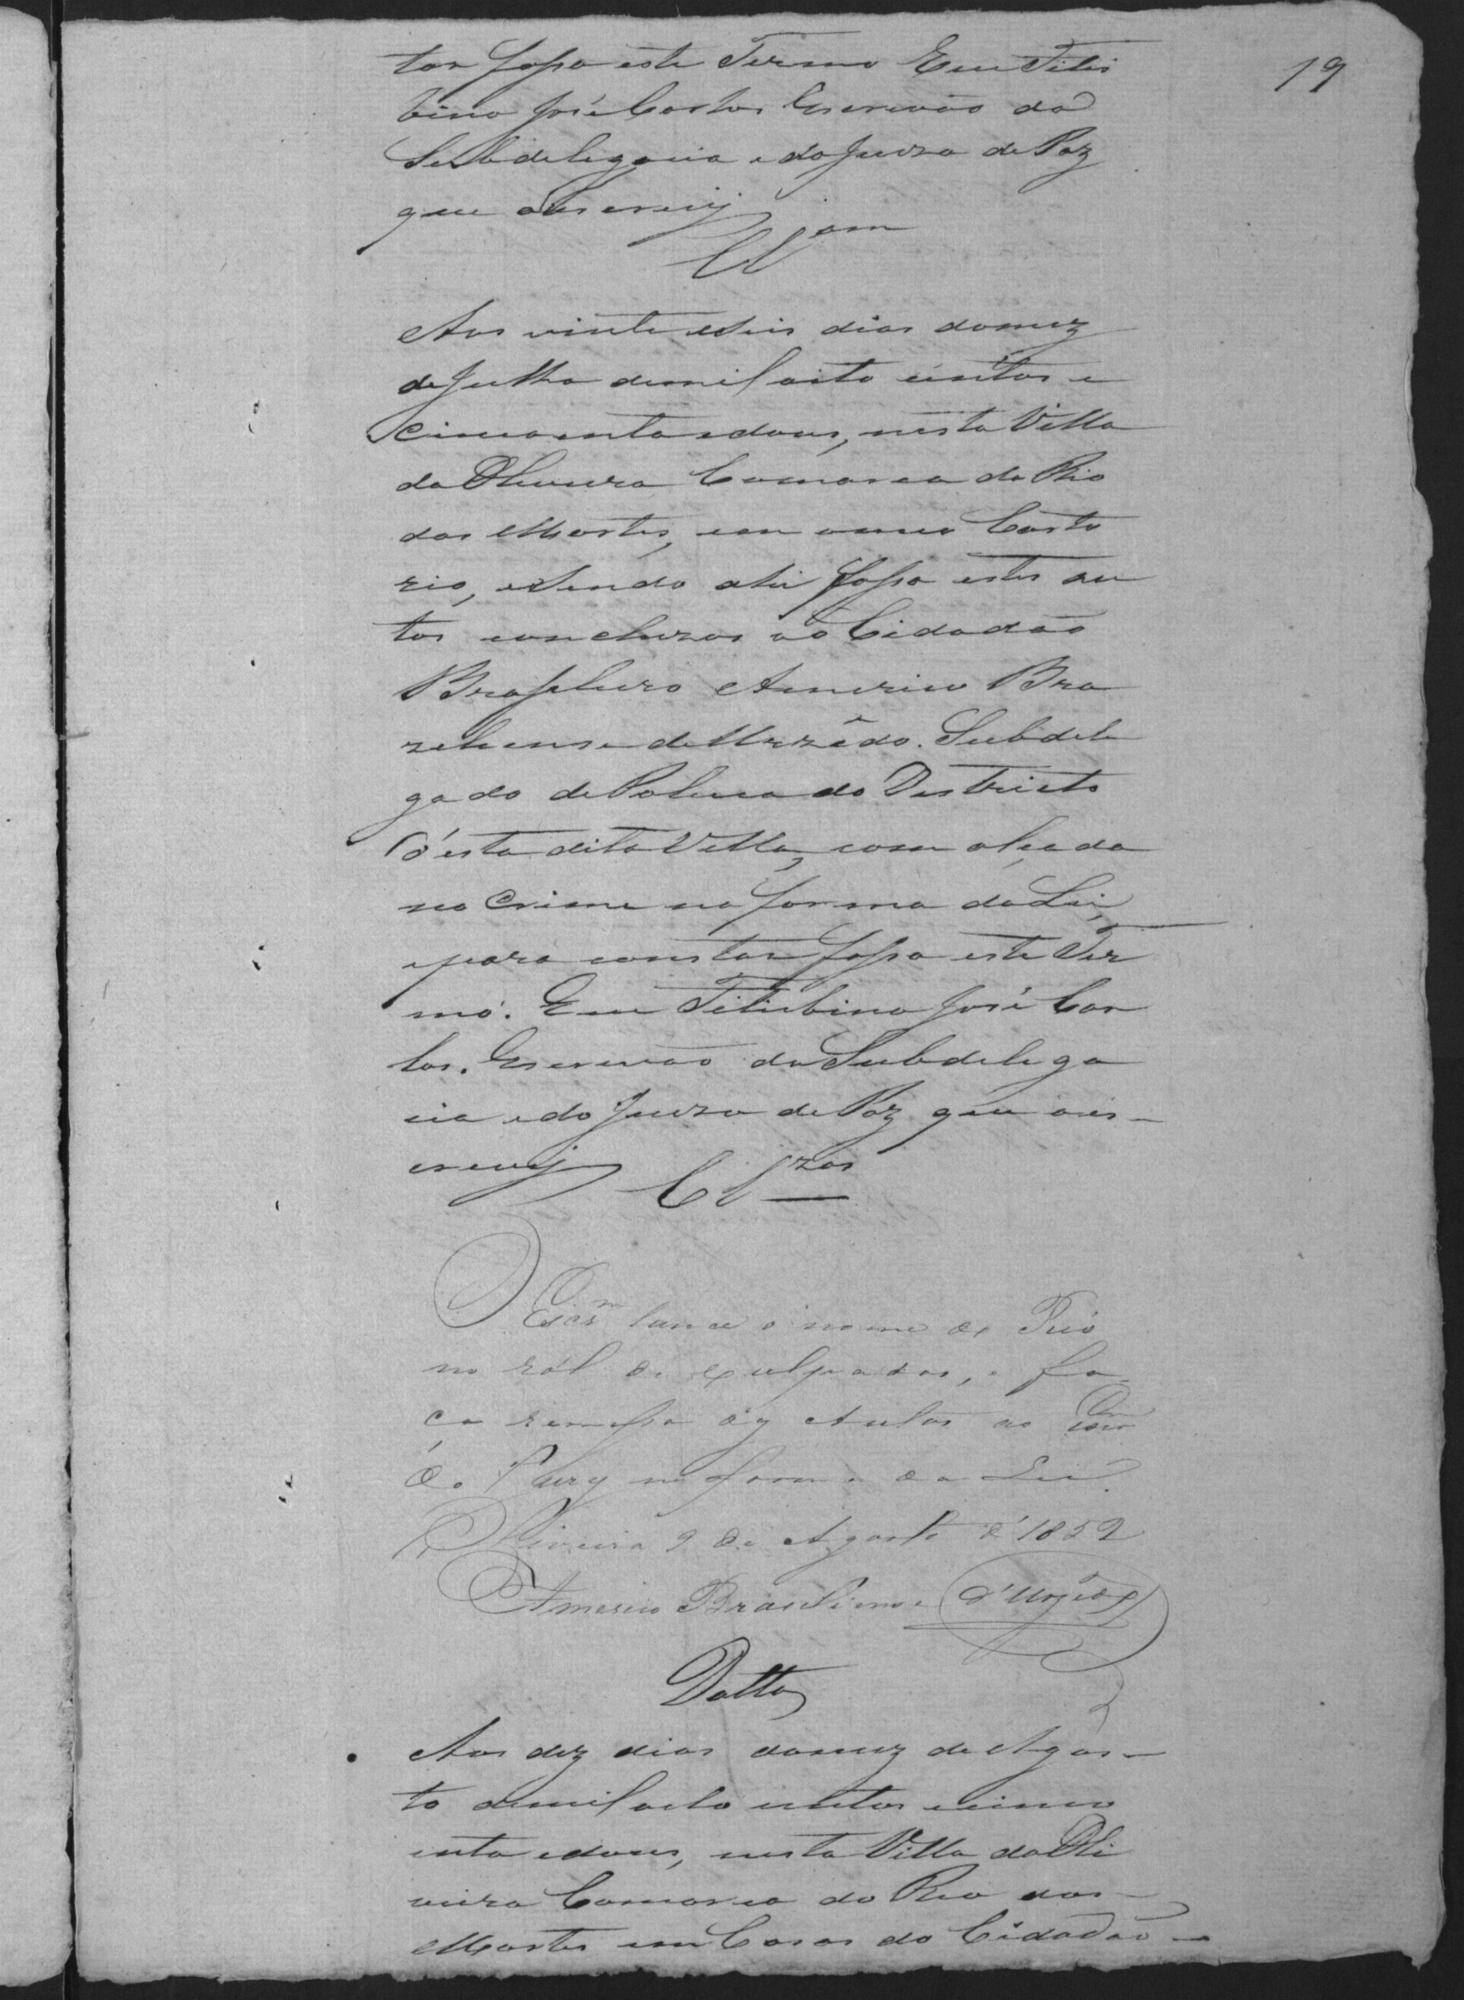 19
tar fasso este Termo Eu Tilis
bino José Carlos Escrivão da
Subdelegacia e do Juizo de Paz
que o escrevij
Clsam
Aos vinte e seis dias do mez
de Julho de mil oito centos e
cincoenta e dous, nesta Villa
da Oliveira Comarca do Rio
das Mortes, em o meo Carto
rio, e sendo ahi fasso estes au
tos concluzos ao Cidadão
Brasileiro Americo Bra
ziliense de Urzêdo. Subdele
gado de Policia do Destricto
d'esta dita Villa, com alçada
no Crime na forma da Lei,
e para constar fasso este Ter
mo. Eu Tilisbino José Car
los. Escrivão da Subdelega
cia e do Juizo de Paz que o es-
crevij Clzos
O Escrm lance o nome do Reó
no ról dos culpados, e fa
ça remessa dos Autos ao
do Jury na forma da Lei.
Oliveira 9 de Agosto d'1852
Americo Brasiliense d'Urzêdo
Datta
Aos dez dias do mez de Agos-
to de mil oito centos e cinco
enta e dous, nesta Villa da Oli
veira Comarca do Rio das
Mortes em Casas do Cidadão